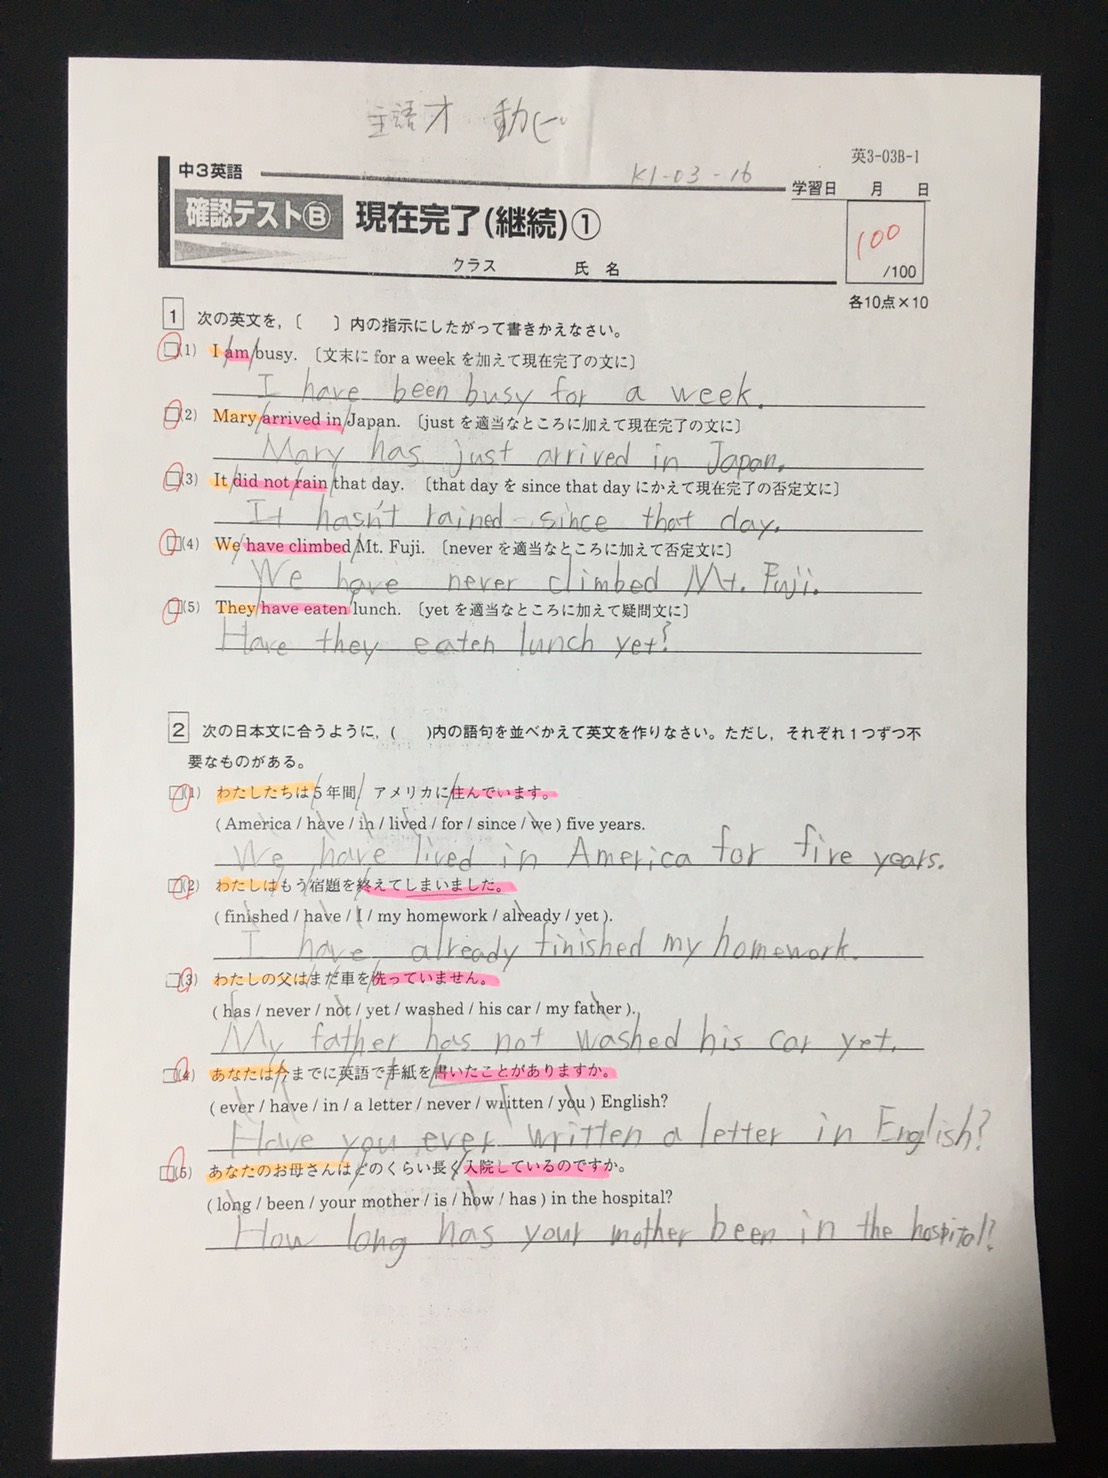 主語 動
英3-03B-1
中3英語
K1-03-16
学習日 月 日
確認テストⒷ 現在完了(継続)①
100
/100
クラス 氏名
各10点×10
1 次の英文を,〔 〕内の指示にしたがって書きかえなさい。
□(1) I am busy. 〔文末に for a week を加えて現在完了の文に〕
I have been busy for a week.
□(2) Mary arrived in Japan. 〔just を適当なところに加えて現在完了の文に〕
Mary has just arrived in Japan.
□(3) It did not rain that day. 〔that day を since that day にかえて現在完了の否定文に〕
It hasn't rained since that day.
□(4) We have climbed Mt. Fuji. 〔never を適当なところに加えて否定文に〕
We have never climbed Mt. Fuji.
□(5) They have eaten lunch. 〔yet を適当なところに加えて疑問文に〕
Have they eaten lunch yet?
2 次の日本文に合うように,( )内の語句を並べかえて英文を作りなさい。ただし,それぞれ1つずつ不
要なものがある。
□(1) わたしたちは5年間 アメリカに住んでいます。
( America / have / in / lived / for / since / we ) five years.
We have lived in America for five years.
□(2) わたしはもう宿題を終えてしまいました。
( finished / have / I / my homework / already / yet ).
I have already finished my homework.
□(3) わたしの父はまだ車を洗っていません。
( has / never / not / yet / washed / his car / my father ).
My father has not washed his car yet.
□(4) あなたは今までに英語で手紙を書いたことがありますか。
( ever / have / in / a letter / never / written / you ) English?
Have you ever written a letter in English?
□(5) あなたのお母さんはどのくらい長く入院しているのですか。
( long / been / your mother / is / how / has ) in the hospital?
How long has your mother been in the hospital?